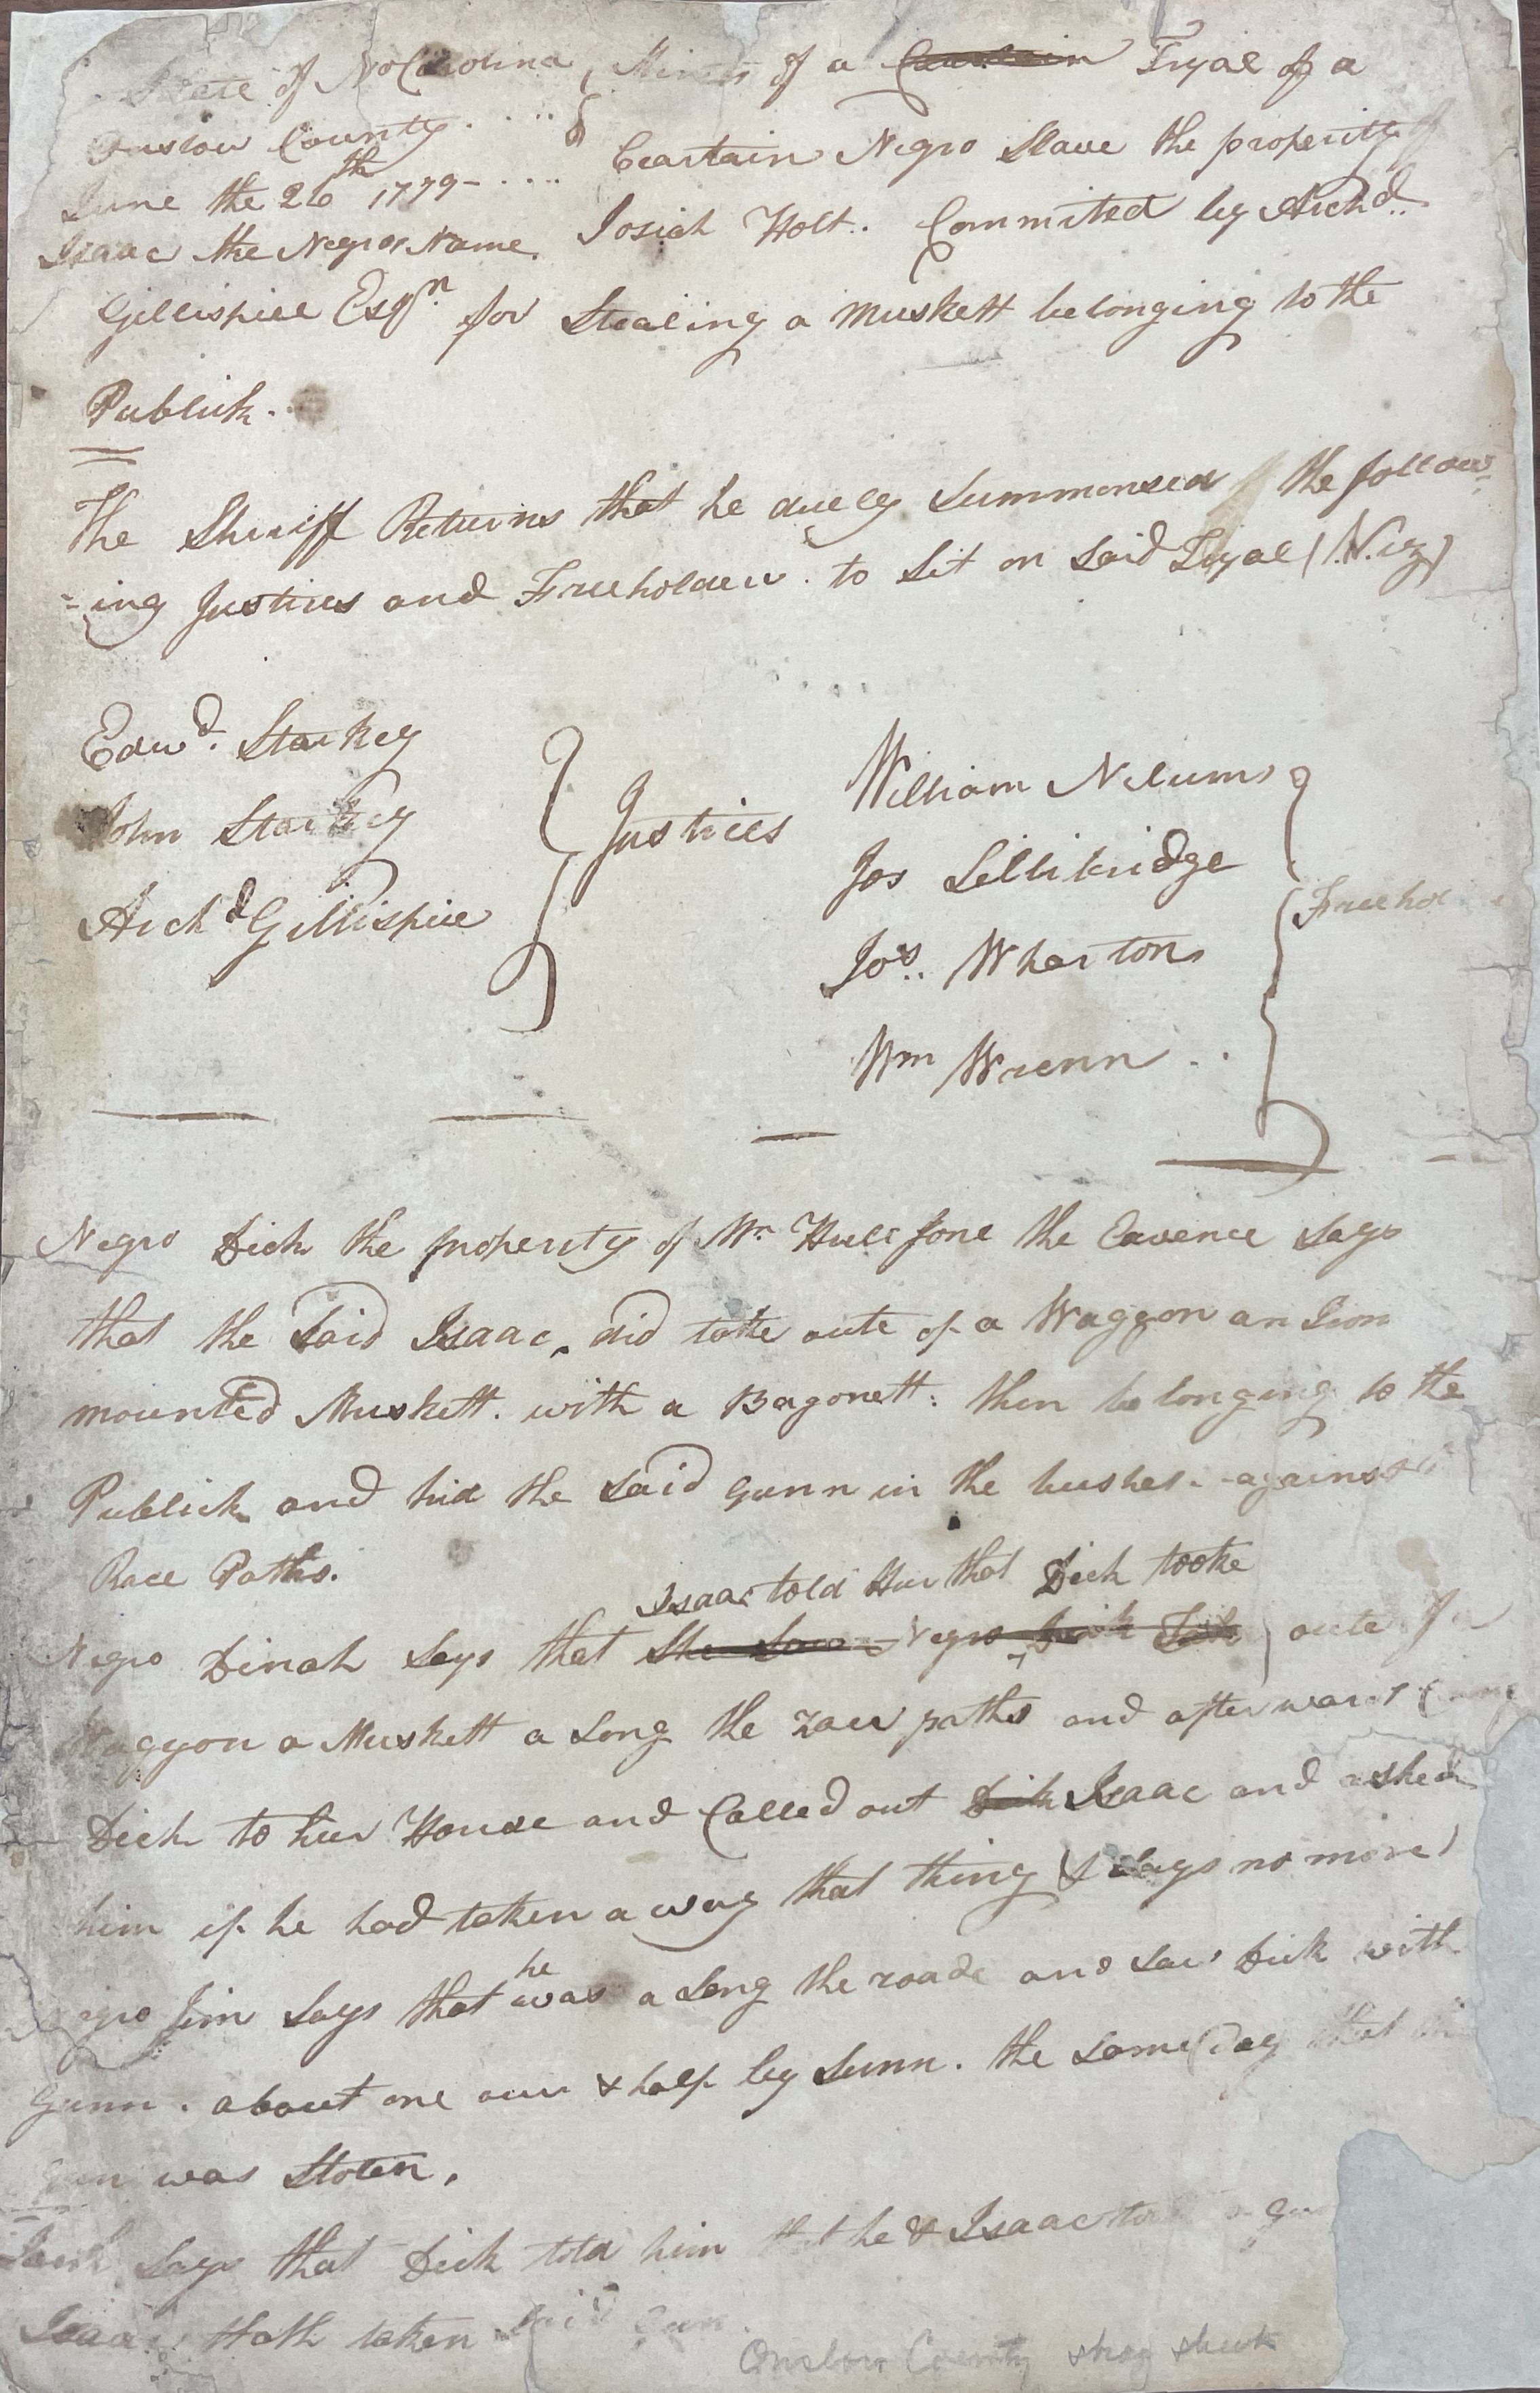 State of No Carolina
Onslow County
June the 26th 1779
Isaac the Negros Name
Minits of a Ceartain Tryal of a
Ceartain Negro Slave the properity of
Josiah Holt. Commited by Archd.
Gillispiee Esqr for Stealing a Muskett belonging to the
Publick.
The Sheriff Returns that he duely Summonsed the follow
-ing Justices and Freeholders to Sit on said Tryal (Viz)
Edwd. Starkey
John Starkey
Archd Gillispiee
Justices
William Nelums
Jos Sellikridge
Jos. Wharton
Wm Wrenn
Negro Dick the properity of Mr Hull for the says
that the said Isaac, did take oute of a Waggon an Iron
mounted Muskett with a Bagonett: then belonging to the
Publick and hid the said gunn in the bushes against
Race Paths.
Isaac told Hur that Dick tooke
Negro Dinah Says that She Saw Negro Dick oute of a
Waggon a Muskett a Long the race paths and afterwards Came
Dick to hur House and Called out Dick Isaac and asked
him if he had taken away that thing & Says no more
he
Negro Jim Says that was a Long the roade and Saw Dick with
Gunn. about one our & half by Sunn. the same Day that
gun was Stolen,
Says that Dick told him that he & Isaac a
Isaac Hath taken Said Gun.
Onslow County stray sheet